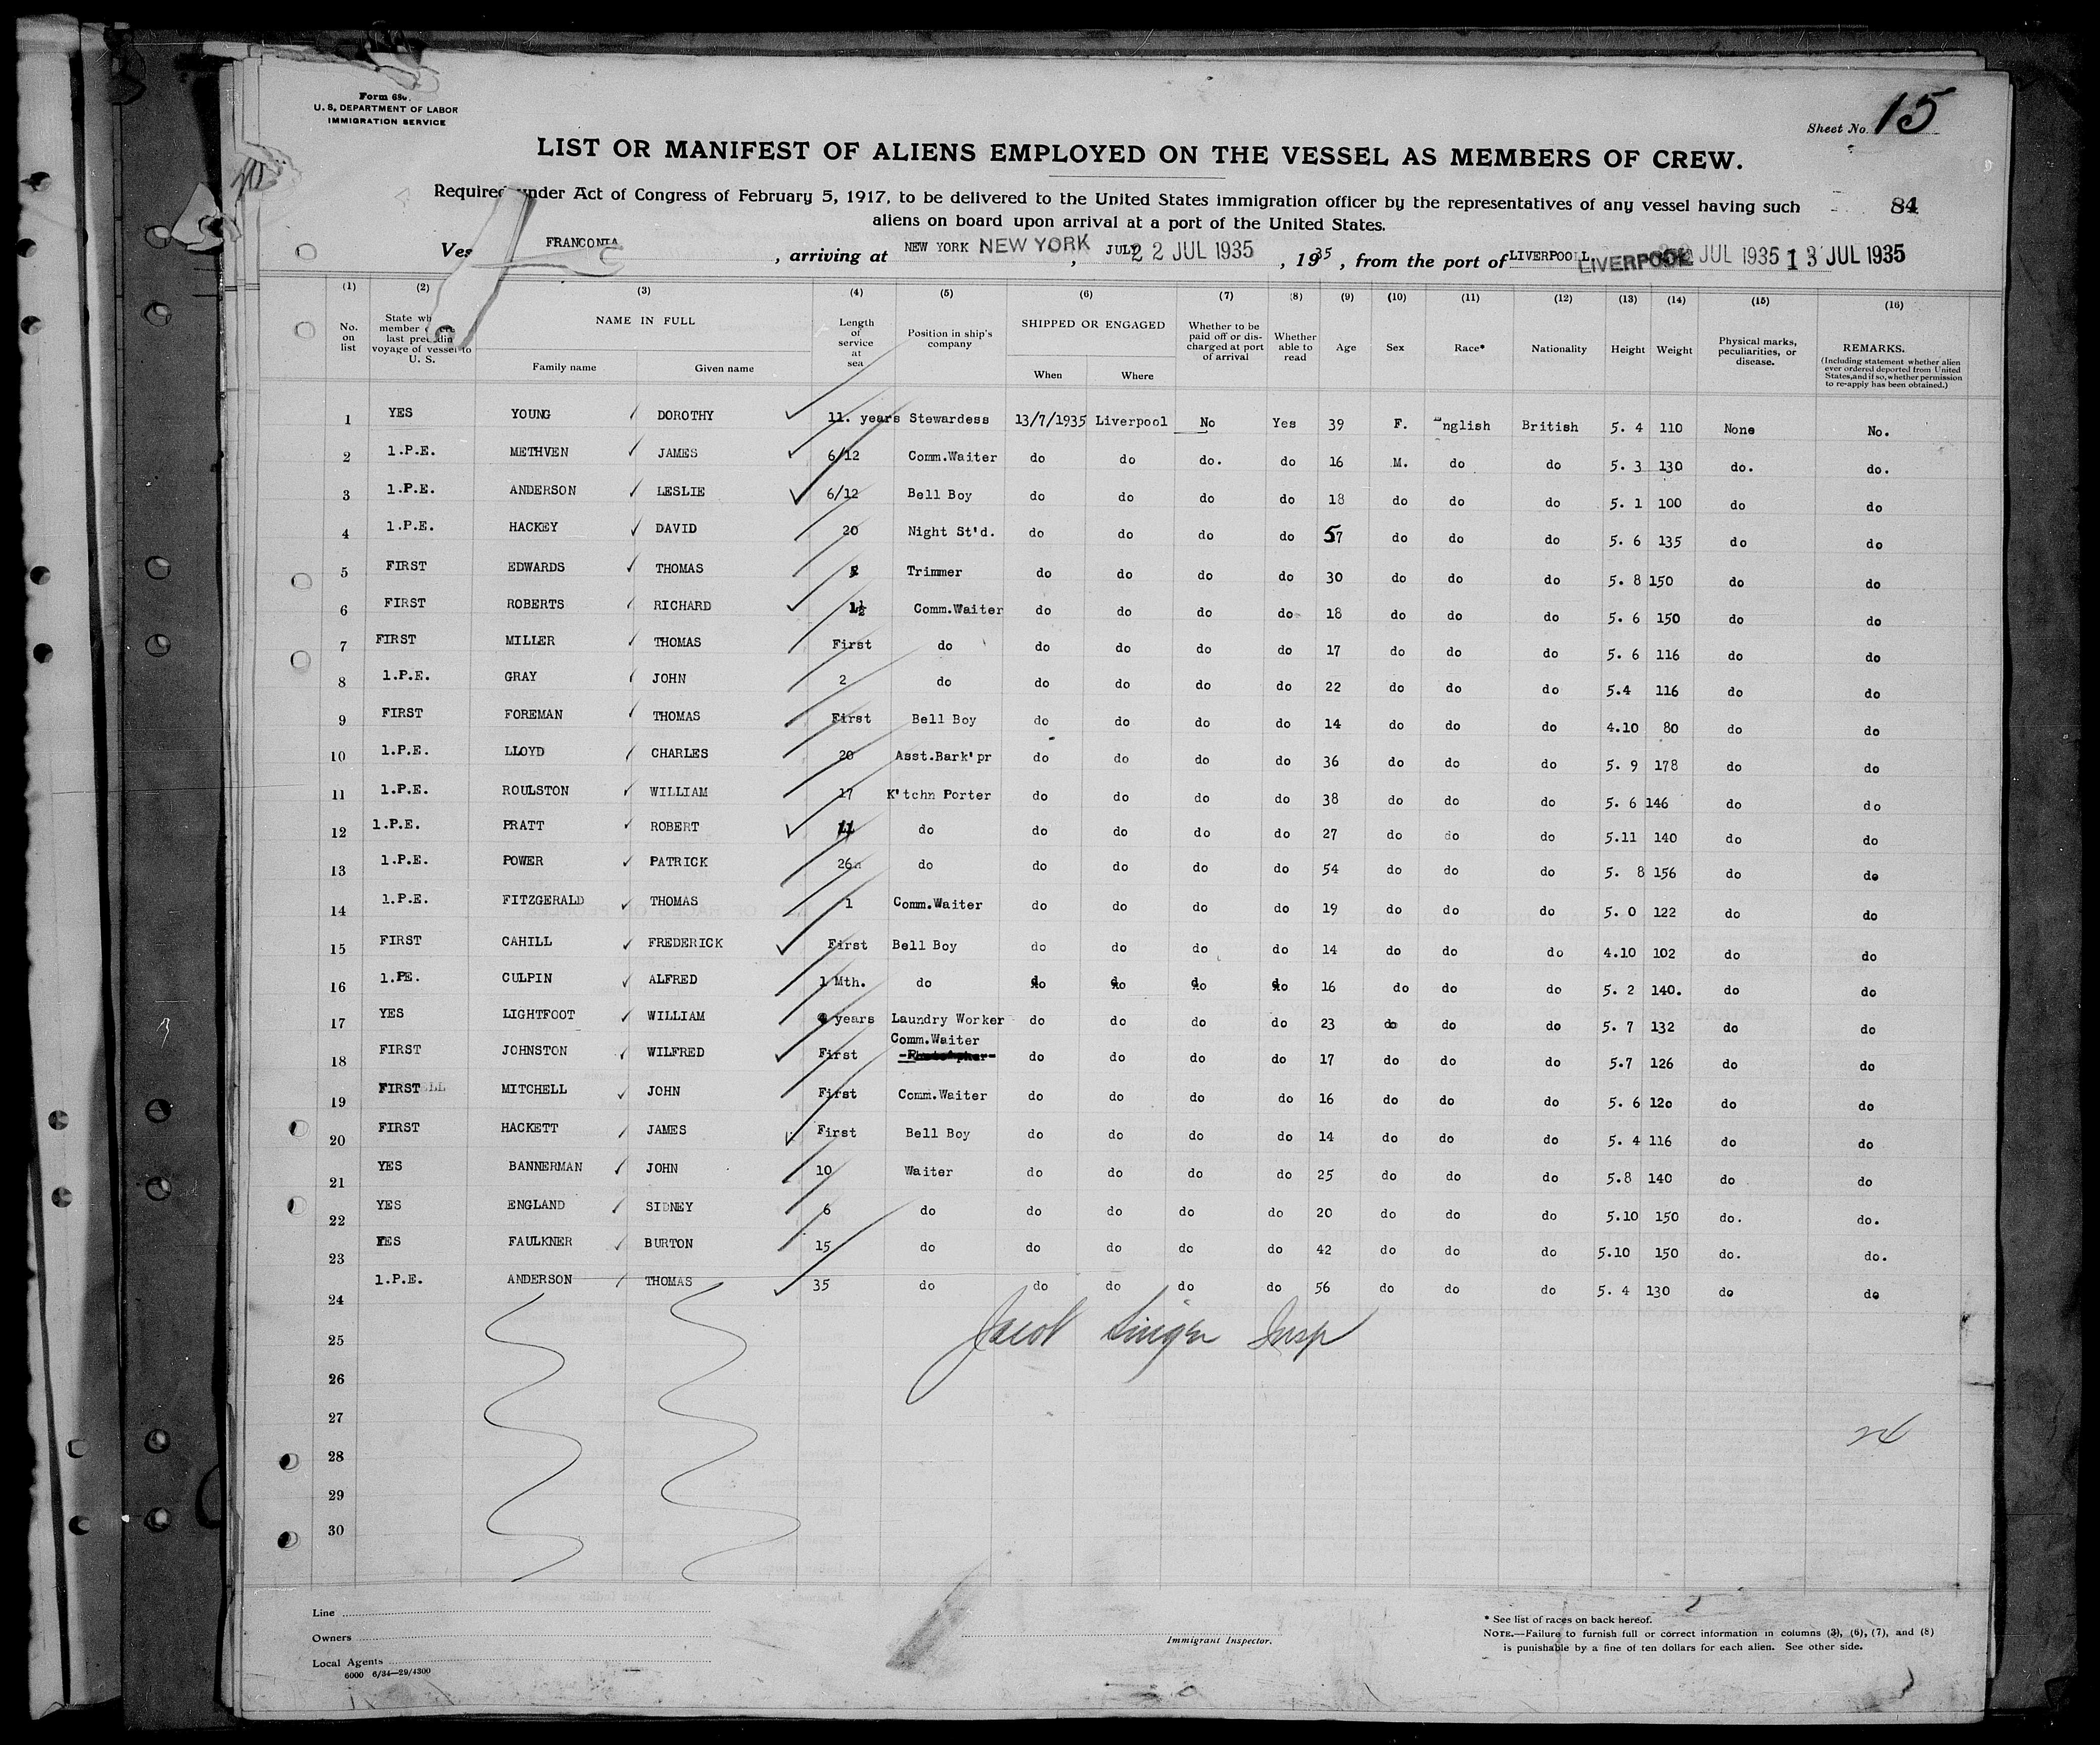 Form 680
U. S. DEPARTMENT OF LABOR
IMMIGRATION SERVICE
Sheet No. 15
LIST OR MANIFEST OF ALIENS EMPLOYED ON THE VESSEL AS MEMBERS OF CREW.
Required under Act of Congress of February 5, 1917, to be delivered to the United States immigration officer by the representatives of any vessel having such
84
aliens on board upon arrival at a port of the United States.
Ves FRANCONIA , arriving at NEW YORK NEW YORK , JULY 22 JUL 1935 , 1935 , from the port of LIVERPOOL. LIVERPOOL JUL 1935 13 JUL 1935
(1) (2) (3) (4) (5) (6) (7) (8) (9) (10) (11) (12) (13) (14) (15) (16)
No. on list
State wh member last precedin voyage of vessel to U. S.
NAME IN FULL
Family name Given name
Length of service at sea
Position in ship's company
SHIPPED OR ENGAGED
When Where
Whether to be paid off or discharged at port of arrival
Whether able to read
Age Sex Race* Nationality Height Weight
Physical marks, peculiarities, or disease.
REMARKS.
(Including statement whether alien ever ordered deported from United States, and if so, whether permission to re-apply has been obtained.)
1 YES YOUNG DOROTHY 11. years Stewardess 13/7/1935 Liverpool No Yes 39 F. English British 5. 4 110 None No.
2 1.P.E. METHVEN JAMES 6/12 Comm.Waiter do do do. do 16 M. do do 5. 3 130 do. do.
3 1.P.E. ANDERSON LESLIE 6/12 Bell Boy do do do do 18 do do do 5. 1 100 do do
4 1.P.E. HACKEY DAVID 20 Night St'd. do do do do 57 do do do 5. 6 135 do do
5 FIRST EDWARDS THOMAS Trimmer do do do do 30 do do do 5. 8 150 do do
6 FIRST ROBERTS RICHARD 1½ Comm.Waiter do do do do 18 do do do 5. 6 150 do do
7 FIRST MILLER THOMAS First do do do do do 17 do do do 5. 6 116 do do
8 1.P.E. GRAY JOHN 2 do do do do do 22 do do do 5.4 116 do do
9 FIRST FOREMAN THOMAS First Bell Boy do do do do 14 do do do 4.10 80 do do
10 1.P.E. LLOYD CHARLES 20 Asst.Bark'pr do do do do 36 do do do 5. 9 178 do do
11 1.P.E. ROULSTON WILLIAM 17 K'tchn Porter do do do do 38 do do do 5. 6 146 do do
12 1.P.E. PRATT ROBERT 11 do do do do do 27 do do do 5.11 140 do do
13 1.P.E. POWER PATRICK 26 do do do do do 54 do do do 5. 8 156 do do
14 1.P.E. FITZGERALD THOMAS 1 Comm.Waiter do do do do 19 do do do 5. 0 122 do do
15 FIRST CAHILL FREDERICK First Bell Boy do do do do 14 do do do 4.10 102 do do
16 1.PE. CULPIN ALFRED 1 Mth. do do do do do 16 do do do 5. 2 140. do do
17 YES LIGHTFOOT WILLIAM 4 years Laundry Worker do do do do 23 do do do 5. 7 132 do do
18 FIRST JOHNSTON WILFRED First Comm.Waiter do do do do 17 do do do 5.7 126 do do
19 FIRST MITCHELL JOHN First Comm.Waiter do do do do 16 do do do 5. 6 120 do do
20 FIRST HACKETT JAMES First Bell Boy do do do do 14 do do do 5. 4 116 do do
21 YES BANNERMAN JOHN 10 Waiter do do do do 25 do do do 5.8 140 do do
22 YES ENGLAND SIDNEY 6 do do do do do 20 do do do 5.10 150 do. do.
23 YES FAULKNER BURTON 15 do do do do do 42 do do do 5.10 150 do. do.
24 1.P.E. ANDERSON THOMAS 35 do do do do do 56 do do do 5. 4 130 do do
25 Jacob Singer Insp
26
27
24
28
29
30
Line
Owners
Local Agents
6000 6/34—29/4300
Immigrant Inspector.
* See list of races on back hereof.
NOTE.—Failure to furnish full or correct information in columns (3), (6), (7), and (8)
is punishable by a fine of ten dollars for each alien. See other side.